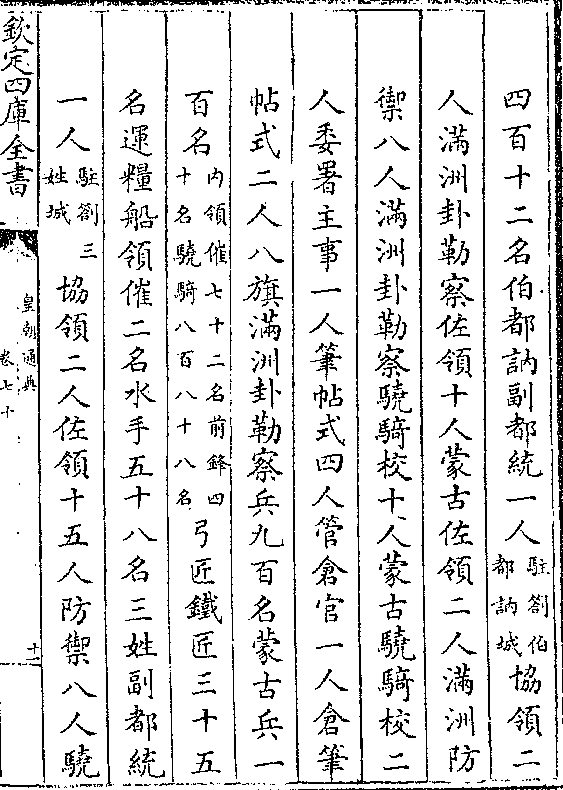 四百十二名伯都訥副都統一人駐劄伯都訥城協領二
人滿洲卦勒察佐領十人蒙古佐領二人滿洲防
禦八人滿洲卦勒察驍騎校十人蒙古驍騎校二
人委署主事一人筆帖式四人管倉官一人倉筆
帖式二人八旗滿洲卦勒察兵九百名蒙古兵一
百名內領催七十二名前鋒四十名驍騎八百八十八名弓匠鐵匠三十五
名運糧船領催二名水手五十八名三姓副都統
一人駐劄三姓城協領二人佐領十五人防禦八人驍
欽定四庫全書
皇朝通典
卷七十
十一